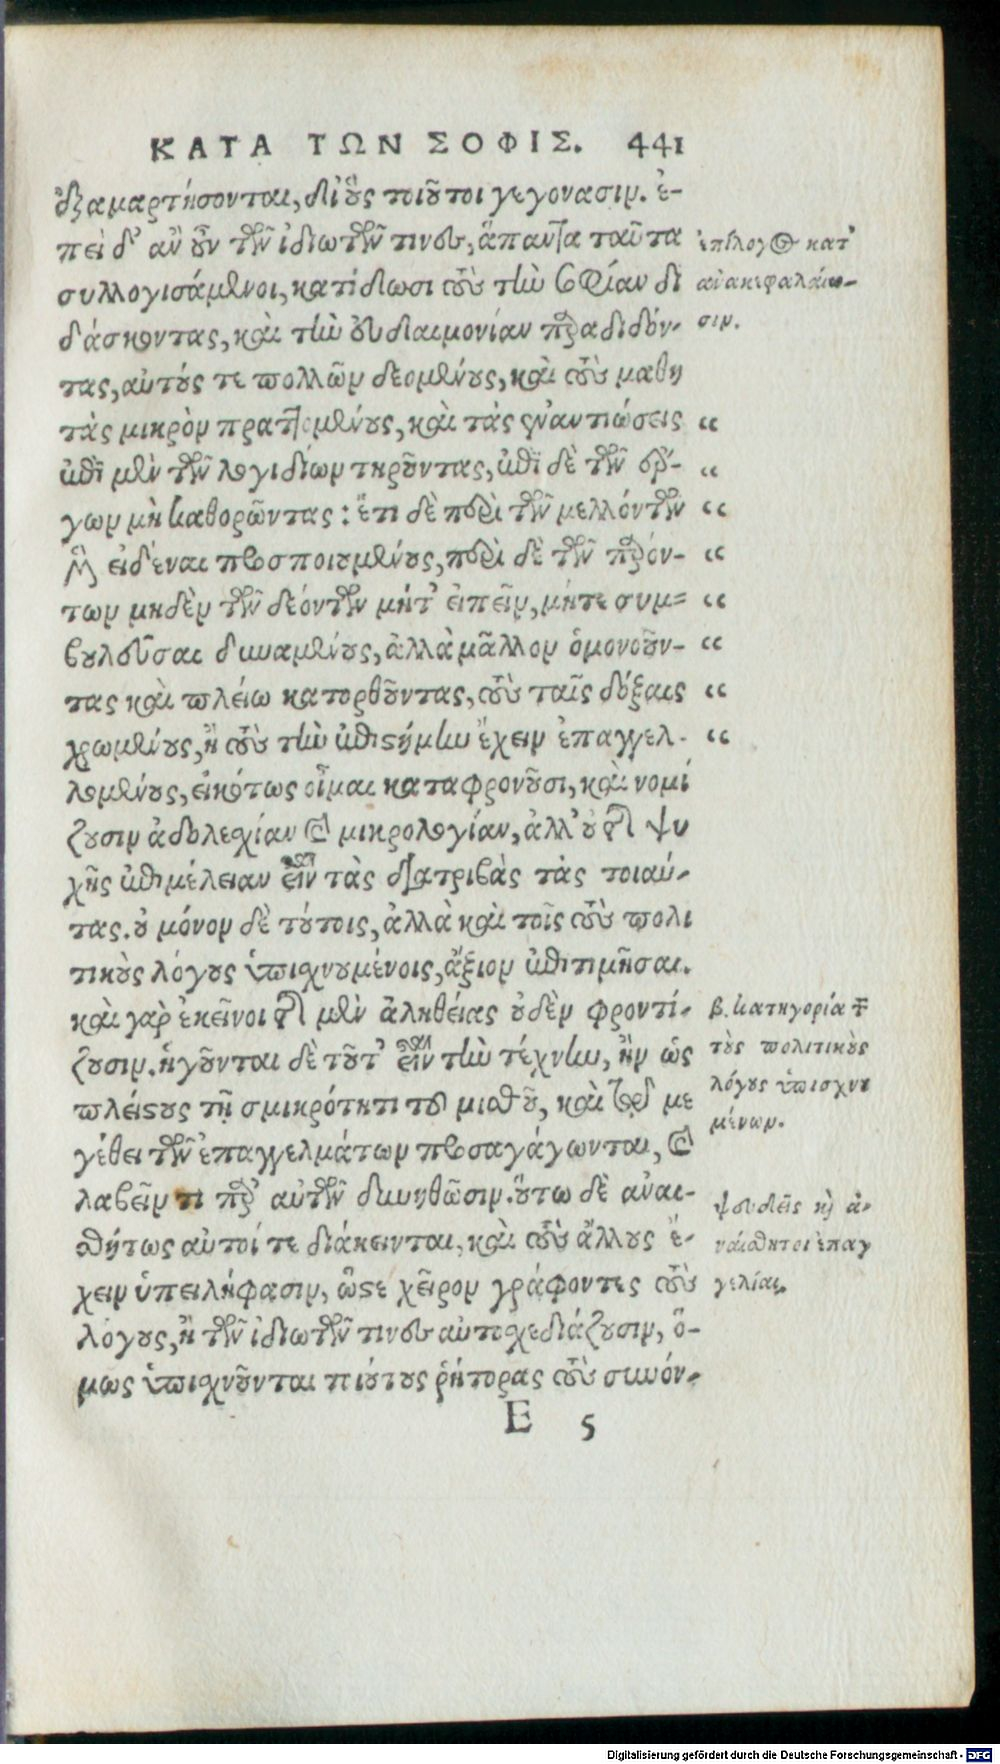 ΚΑΤΑ ΤΩΝ ΣΟΦΙΣ. 441
ἐξαμαρτήσονται, δι' οὓς τοιοῦτοι γεγόνασιν. ἐ-
πειδ' ἂν οὖν τῶν ἰδιωτῶν τινες, ἅπαντα ταῦτα
συλλογισάμενοι, κατίδωσι τοὺς τὴν σοφίαν δι
δάσκοντας, καὶ τὴν εὐδαιμονίαν παραδιδόν-
τας, αὐτούς τε πολλῶν δεομένους, καὶ τοὺς μαθη
τὰς μικρὸν πραττομένους, καὶ τὰς ἐναντιώσεις “
ἐπὶ μὲν τῶν λογιδίων τηροῦντας, ἐπὶ δὲ τῶν ἔρ- “
γων μὴ καθορῶντας: ἔτι δὲ περὶ τῶν μελλόντων “
μὲν εἰδέναι προσποιουμένους, περὶ δὲ τῶν παρόν- “
των μηδὲν τῶν δεόντων μήτ' εἰπεῖν, μήτε συμ- “
βουλεῦσαι δυναμένους, ἀλλὰ μᾶλλον ὁμονοοῦν- “
τας καὶ πλείω κατορθοῦντας, τοὺς ταῖς δόξαις “
χρωμένους, ἢ τοὺς τὴν ἐπιστήμην ἔχειν ἐπαγγελ- “
λομένους, εἰκότως οἶμαι καταφρονοῦσι, καὶ νομί
ζουσιν ἀδολεσχίαν καὶ μικρολογίαν, ἀλλ' οὐ τῆς ψυ
χῆς ἐπιμέλειαν εἶναι τὰς διατριβὰς τὰς τοιαύ-
τας. οὐ μόνον δὲ τούτοις, ἀλλὰ καὶ τοῖς τοὺς πολι
τικοὺς λόγους ὑπισχνουμένοις, ἄξιον ἐπιτιμῆσαι.
καὶ γὰρ ἐκεῖνοι τῆς μὲν ἀληθείας οὐδὲν φροντί-
ζουσιν. ἡγοῦνται δὲ τοῦτ' εἶναι τὴν τέχνην, ἢν ὡς
πλείστους τῇ σμικρότητι τοῦ μισθοῦ, καὶ τῷ με
γέθει τῶν ἐπαγγελμάτων προσαγάγωνται, καὶ
λαβεῖν τι παρ' αὐτῶν δυνηθῶσιν. οὕτω δὲ ἀναι-
σθήτως αὐτοί τε διάκεινται, καὶ τοὺς ἄλλους ἔ-
χειν ὑπειλήφασιν, ὥστε χεῖρον γράφοντες τοὺς
λόγους, ἢ τῶν ἰδιωτῶν τινες αὐτοσχεδιάζουσιν, ὅ-
μως ὑπισχνοῦνται τοιούτους ῥήτορας τοὺς συνόν-
Ε 5
ἐπίλογος κατ'
ἀνακεφαλαίω-
σιν.
β. κατηγορία τῶν
τοὺς πολιτικοὺς
λόγους ὑπισχνου
μένων.
ψευδεῖς καὶ ἀ-
ναίσθητοι ἐπαγ
γελίαι.
Digitalisierung gefördert durch die Deutsche Forschungsgemeinschaft - DFG